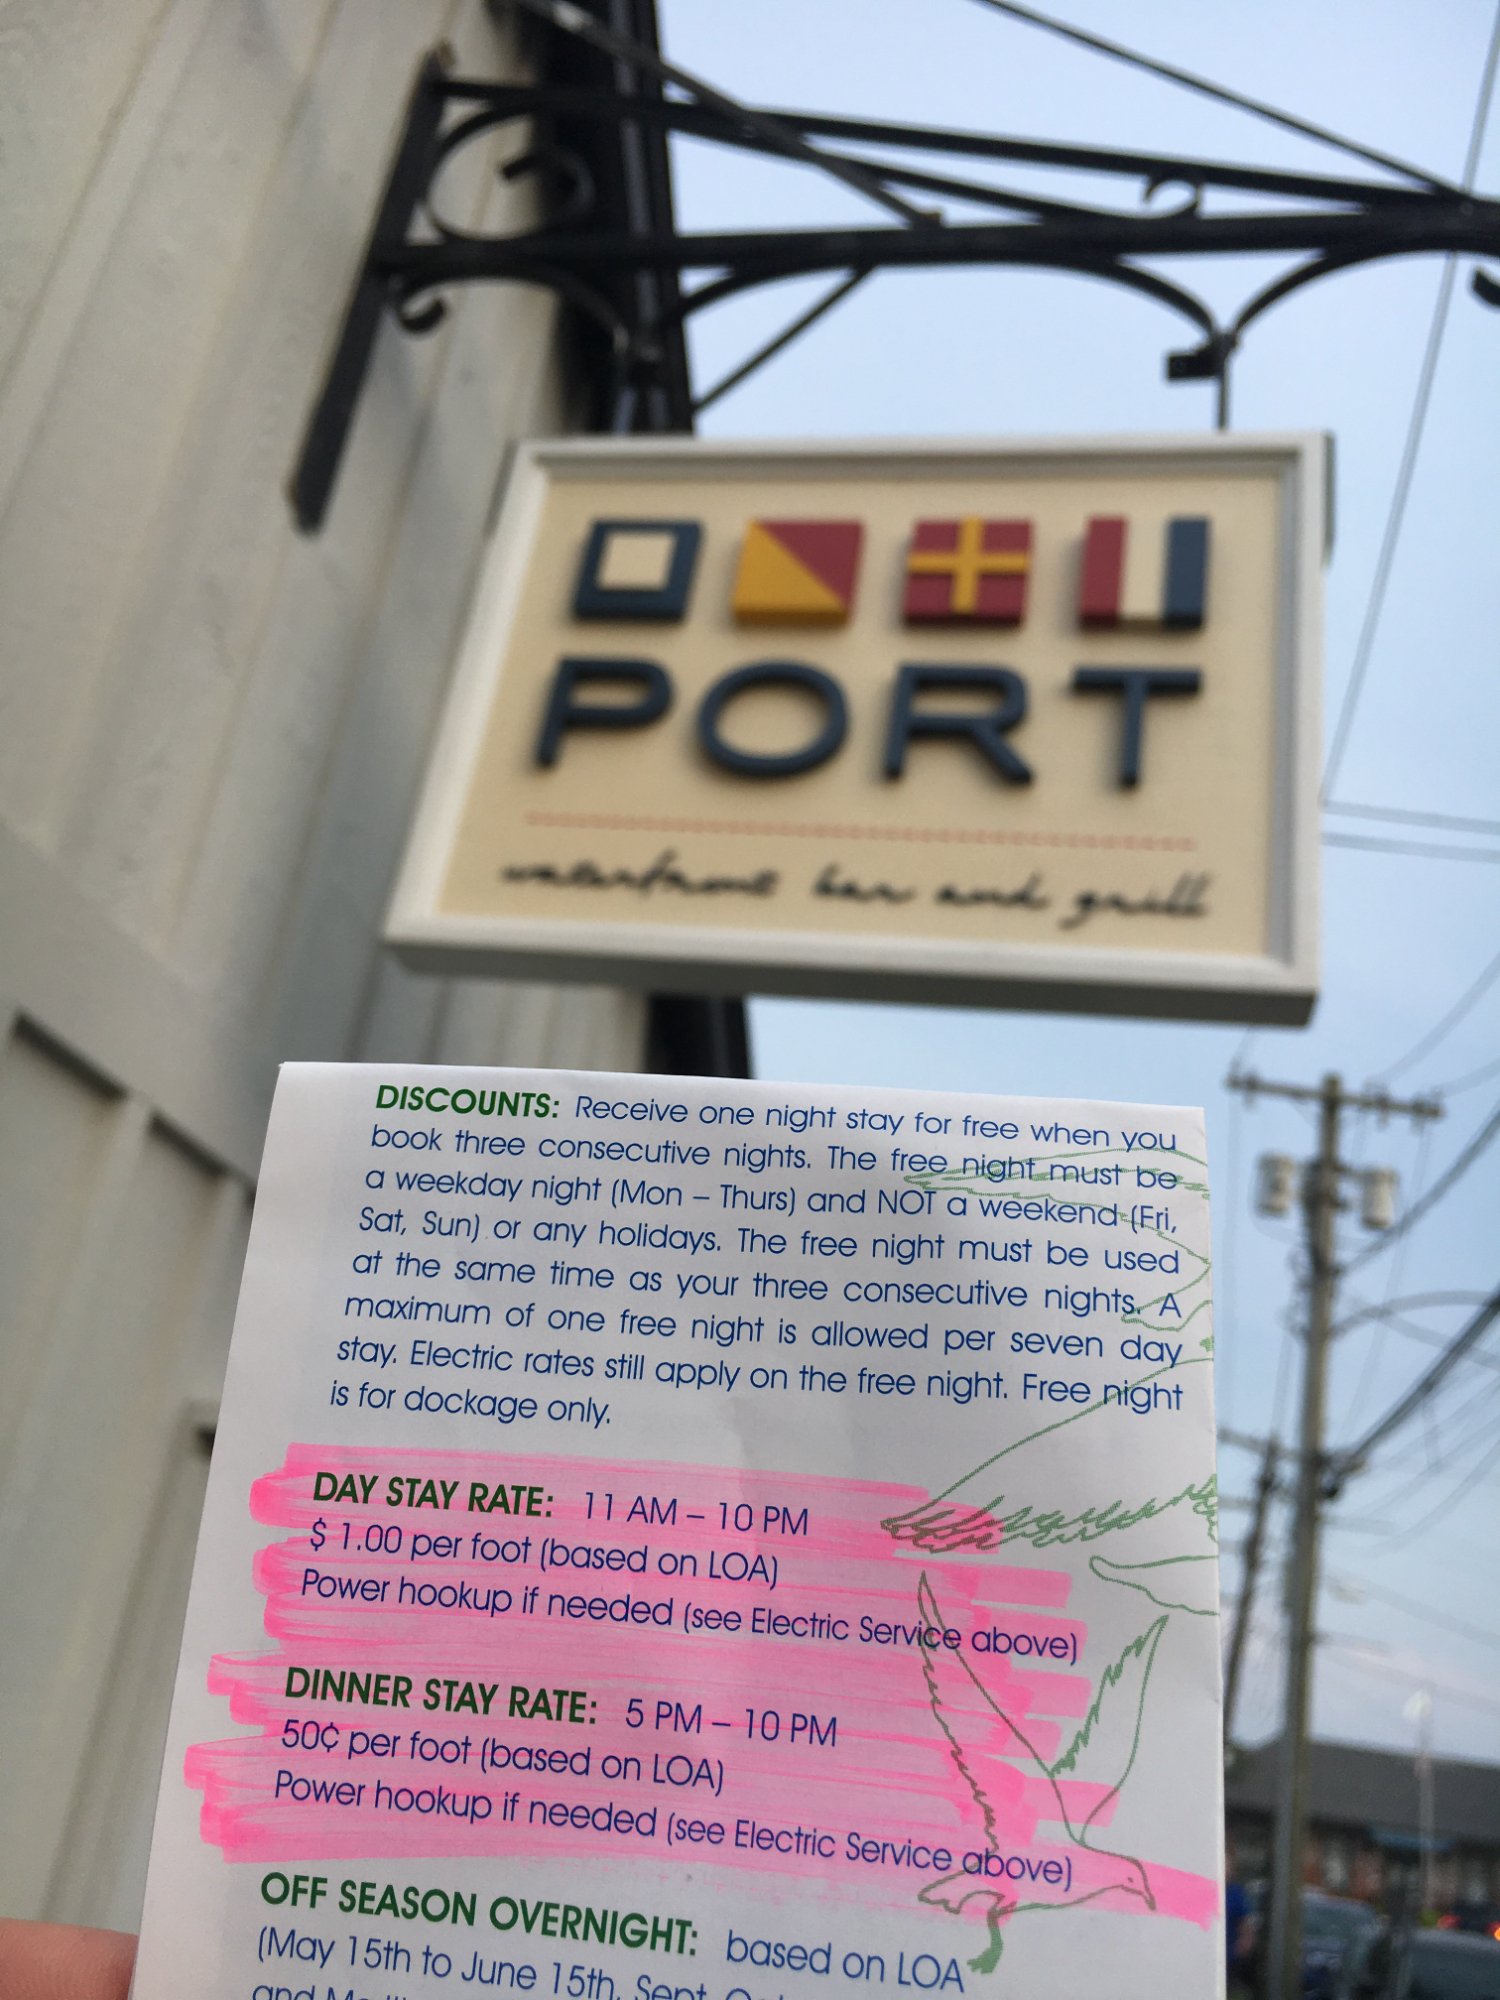 PORT
waterfront bar and grill
DISCOUNTS: Receive one night stay for free when you
book three consecutive nights. The free night must be
a weekday night (Mon – Thurs) and NOT a weekend (Fri,
Sat, Sun) or any holidays. The free night must be used
at the same time as your three consecutive nights. A
maximum of one free night is allowed per seven day
stay. Electric rates still apply on the free night. Free night
is for dockage only.
DAY STAY RATE: 11 AM – 10 PM
$ 1.00 per foot (based on LOA)
Power hookup if needed (see Electric Service above)
DINNER STAY RATE: 5 PM – 10 PM
50¢ per foot (based on LOA)
Power hookup if needed (see Electric Service above)
OFF SEASON OVERNIGHT: based on LOA
(May 15th to June 15th, Sept,
and